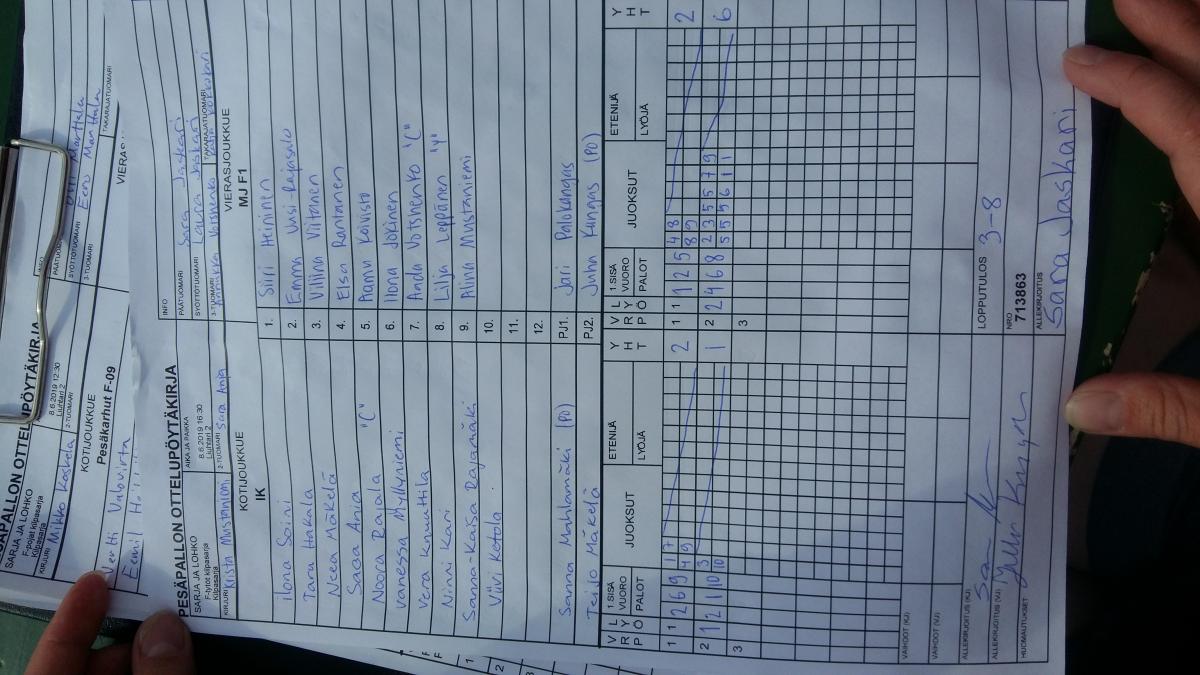 PESÄPALLON OTTELUPÖYTÄKIRJA
SARJA JA LOHKO
F-pojat kilpasarja
Kilpasarja
8.6.2019 12:30
Liuhtari 2
KIRJURI Mikko Koskela
2-TUOMARI
PÄÄTUOMARI
SYÖTTÖTUOMARI Eero Marttala
3-TUOMARI
TAKARAJATUOMARI
KOTIJOUKKUE
Pesäkarhut F-09
Veetti Valovirta
Eemil
PESÄPALLON OTTELUPÖYTÄKIRJA
SARJA JA LOHKO
F-tytöt kilpasarja
Kilpasarja
AIKA JA PAIKKA
8.6.2019 16:30
Liuhtari 2
INFO
PÄÄTUOMARI Sara Jaskari
SYÖTTÖTUOMARI Laura Jaskari
KIRJURI Krista Mustaniemi
2-TUOMARI Sara Anja
3-TUOMARI
TAKARAJATUOMARI
KOTIJOUKKUE
IK
VIERASJOUKKUE
MJ F1
Ilona Soini 1. Siiri Heininen
Taru Hakala 2. Emma Uusi-Rajasalo
Neea Mäkelä 3. Viliina Viitanen
Saaa Anja 4. Elsa Rantanen
Noora Rajala "C" 5. Aamu Koivisto
Vanessa Myllyniemi 6. Ilona Jokinen
Vera Knuuttila 7. Anda Votshenko "C"
Ninni Kari 8. Lilja Leppänen
Sanna-Kaisa Rajamäki 9. Alina Mustaniemi
Viivi Ketola 10.
11.
12.
Sanna Mahlamäki (PO) PJ1. Jari Palokangas
Teijo Mäkelä PJ2. Juha Kangas (PO)
V R P L Y Ö 1.SISÄ VUORO PALOT JUOKSUT ETENIJÄ LYÖJÄ Y H T V R P L Y Ö 1.SISÄ VUORO PALOT JUOKSUT ETENIJÄ LYÖJÄ Y H T
1 1 2 6 9 1 7 2 1 1 1 2 5 4 8 2
4 9 8 9
2 1 2 1 10 3 1 2 2 4 6 8 2 3 5 5 7 9 6
10 5 5 5 6 1 1
3 3
VAIHDOT (KJ)
VAIHDOT (VJ)
ALLEKIRJOITUS (KJ)
LOPPUTULOS 3-8
ALLEKIRJOITUS (VJ)
NRO
713863
HUOMAUTUKSET
ALLEKIRJOITUS
Sara Jaskari